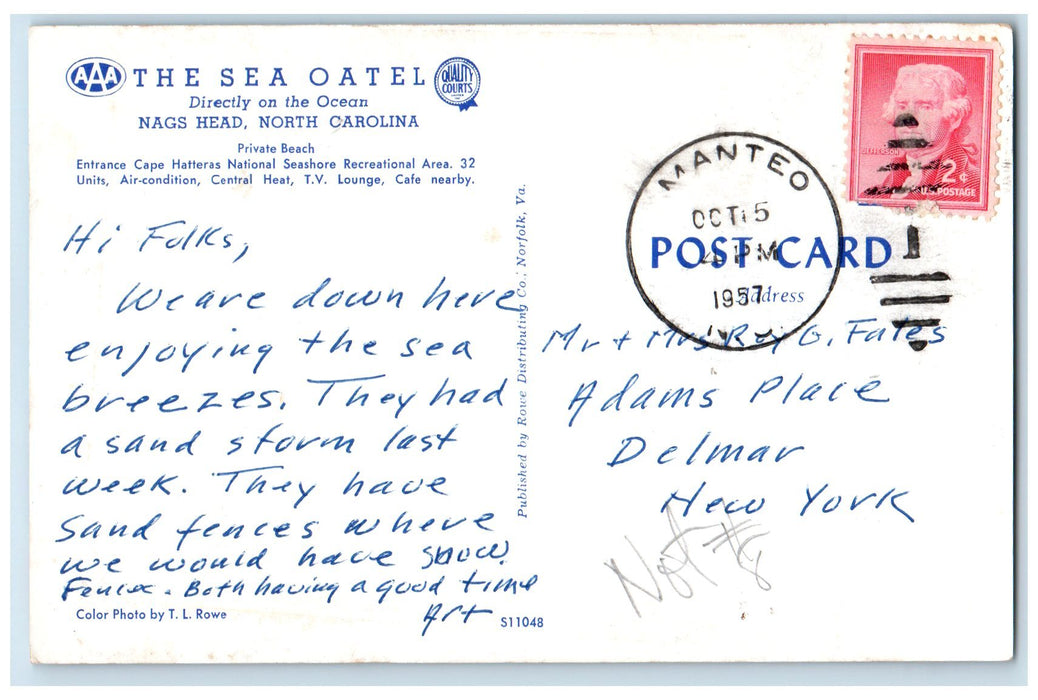 AAA THE SEA OATEL QUALITY COURTS
Directly on the Ocean
NAGS HEAD, NORTH CAROLINA
Private Beach
Entrance Cape Hatteras National Seashore Recreational Area. 32
Units, Air-condition, Central Heat, T.V. Lounge, Cafe nearby.
Hi Folks,
We are down here
enjoying the sea
breezes. They had
a sand storm last
week. They have
sand fences where
we would have snow
Fence. Both having a good time
Art
Color Photo by T. L. Rowe
S11048
Published by Rowe Distributing Co., Norfolk, Va.
MANTEO
OCT 15
4 PM
1957
N.C.
JEFFERSON
2¢
U.S. POSTAGE
POST CARD
Address
Mr + Mrs Roy G. Fates
Adams Place
Delmar
New York
Not #8